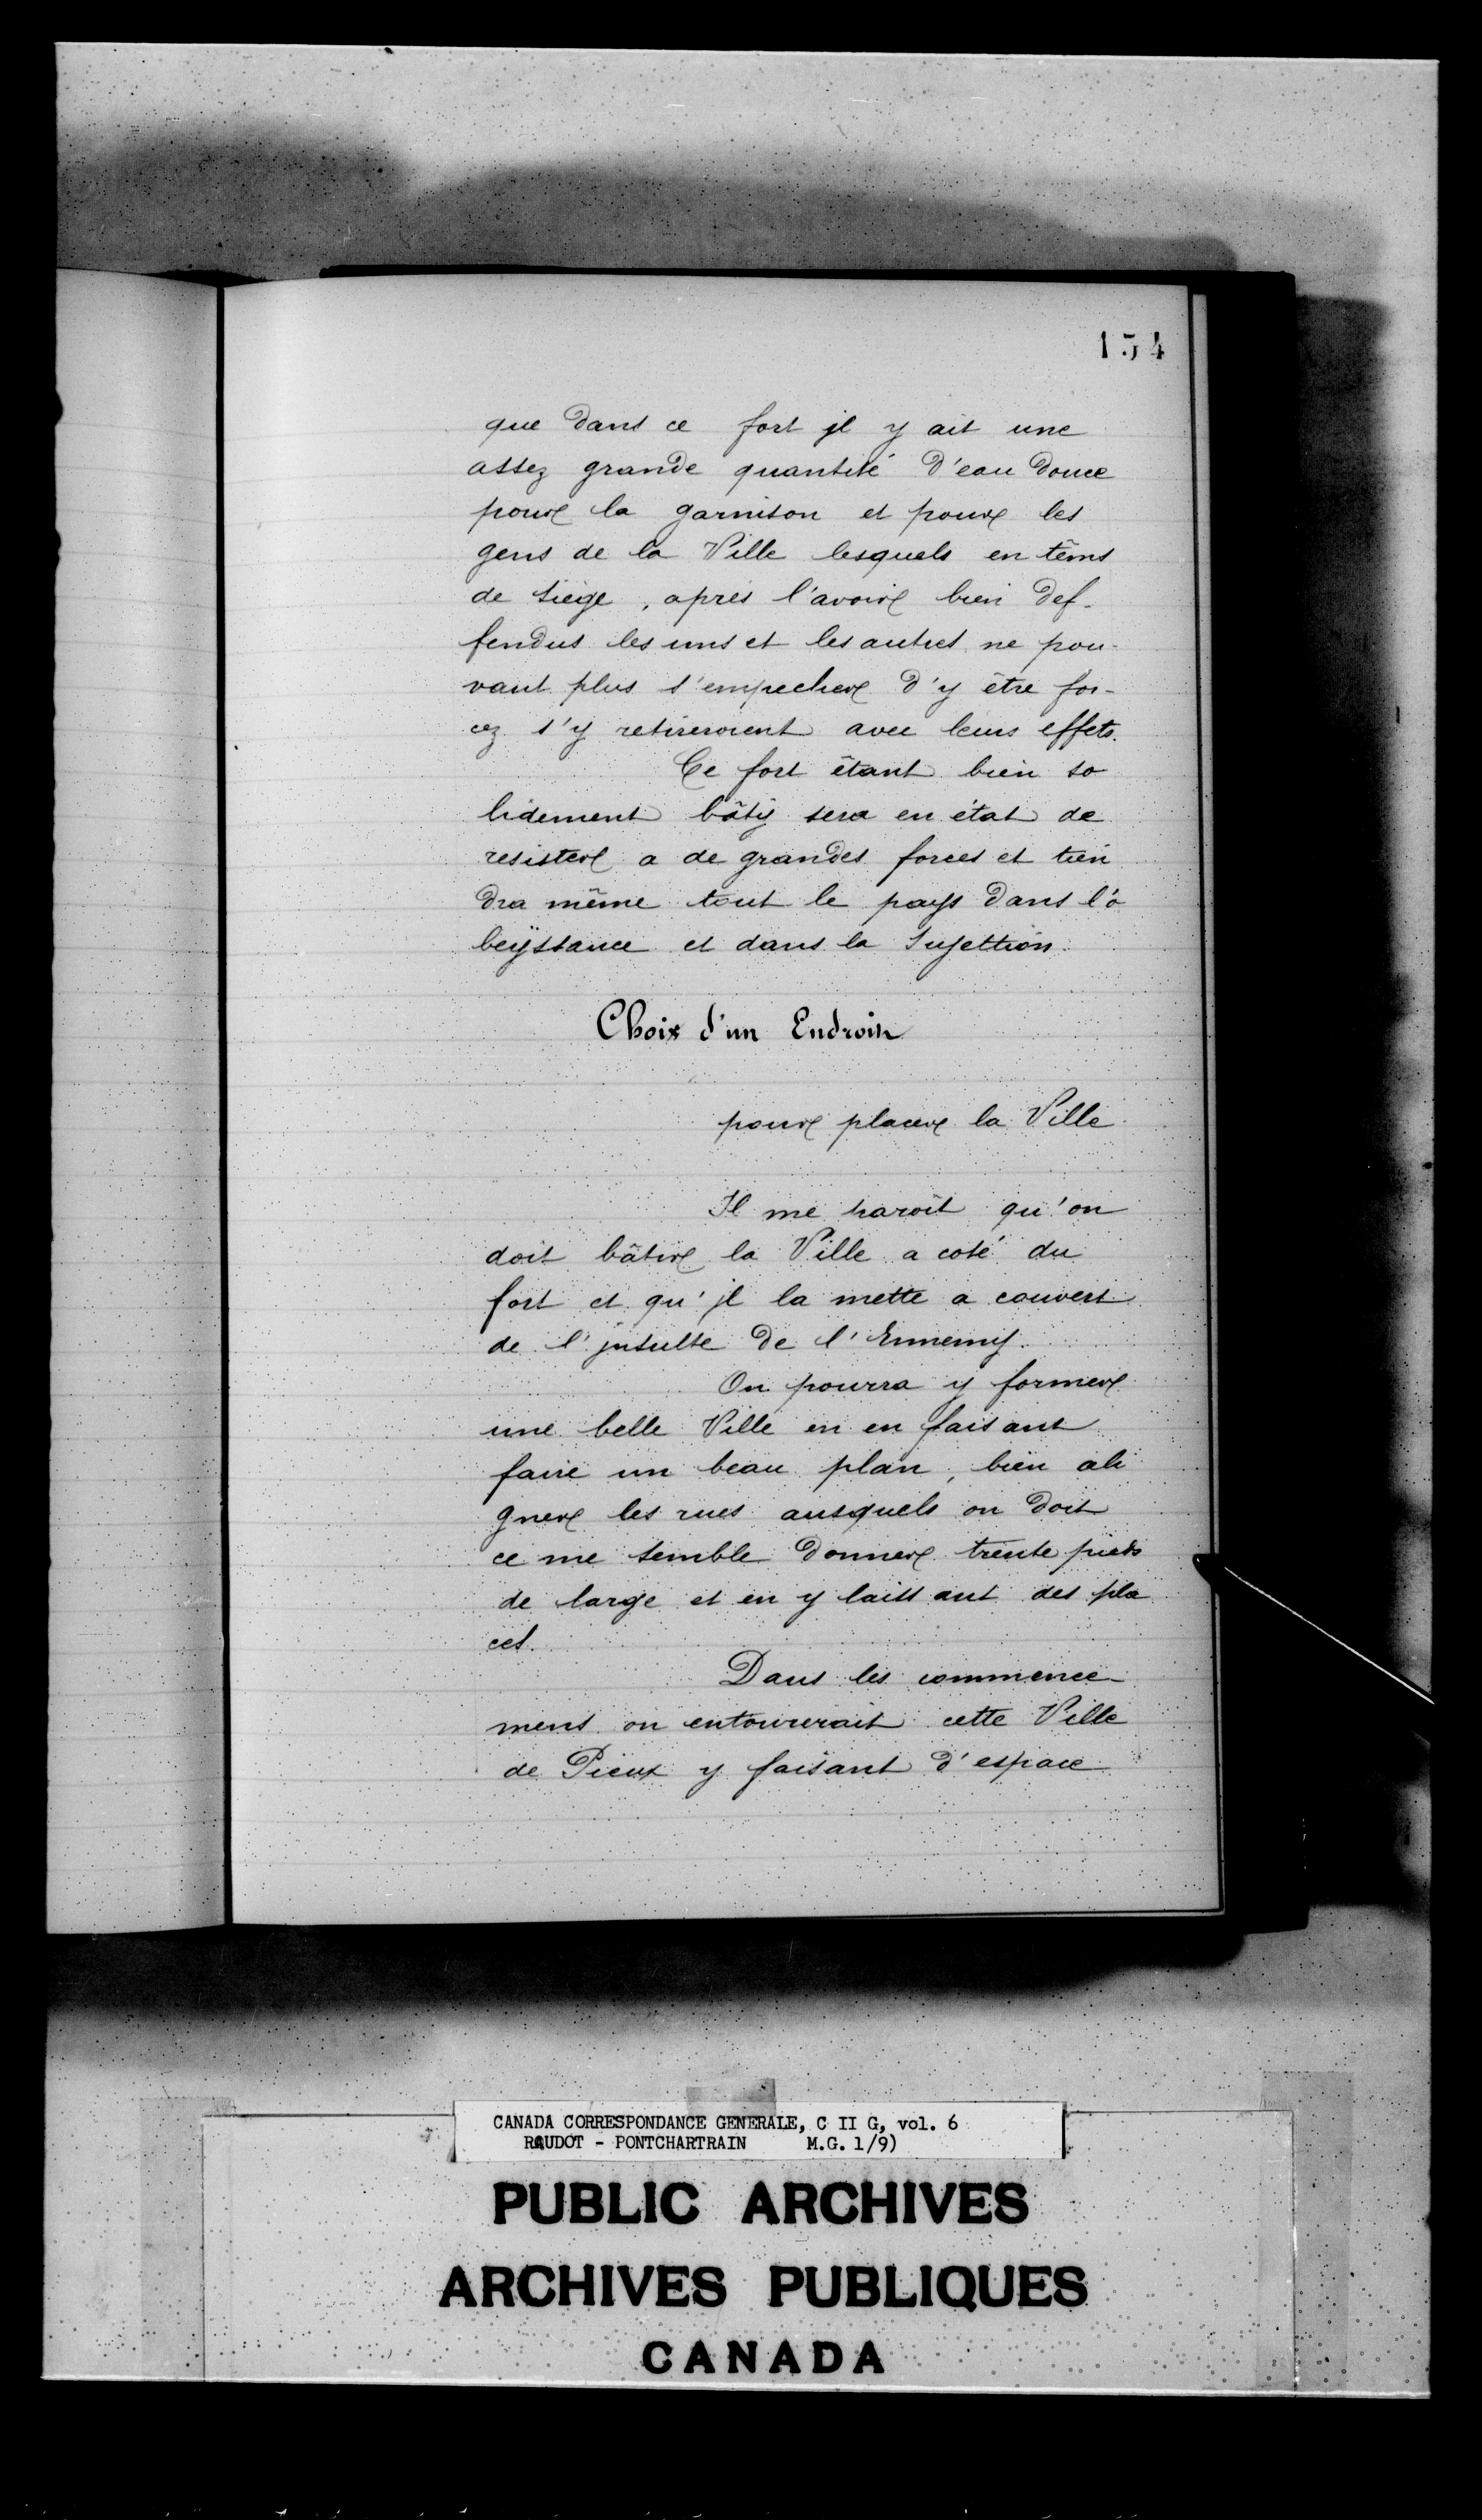 154
que dans ce fort jl y ait une
assez grande quantité d'eau douce
pour la garnison et pour les
gens de la Ville lesquels en têms
de siége, aprés l'avoir bien def-
fendus les uns et les autres ne pou-
vant plus s'empecher d'y être for-
cez s'y retireroient avec leurs effets.
Ce fort étant bien so
lidement bâty sera en état de
resister a de grandes forces et tien
dra même tout le pays dans l'o
beÿssance et dans la Sujettion.
Choix d'un Endroit
pour placer la Ville
Il me paroît qu'on
doit bâtir la Ville a coté du
fort et qu'jl la mette a couvert
de l'jnsulte de l'Ennemy.
On pourra y former
une belle Ville en en faisant
faire un beau plan, bien ali
gner les rues ausquels on doit
ce me semble donner trente pieds
de large et en y laissant des pla
ces.
Dans les commence-
mens on entoureroit cette Ville
de Pieux y faisant d'espace
CANADA CORRESPONDANCE GENERALE, C II G, vol. 6
RAUDOT - PONTCHARTRAIN M.G. 1/9)
PUBLIC ARCHIVES
ARCHIVES PUBLIQUES
CANADA